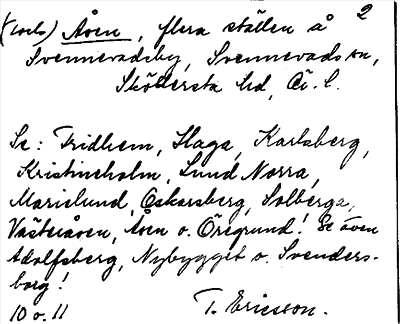 2
(torp) Åven, flera ställen å
Svennevadsby, Svennevads sn,
Sköllersta hd, Ör. l.
Se: Fridhem, Haga, Karlsberg,
Kristineholm, Lund Norra,
Marielund, Oskarsberg, Solberga,
Västeråven, Åven o. Öregrund! Se även
Adolfsberg, Nybygget o. Svenders-
borg!
10 o. 11 T. Ericsson.